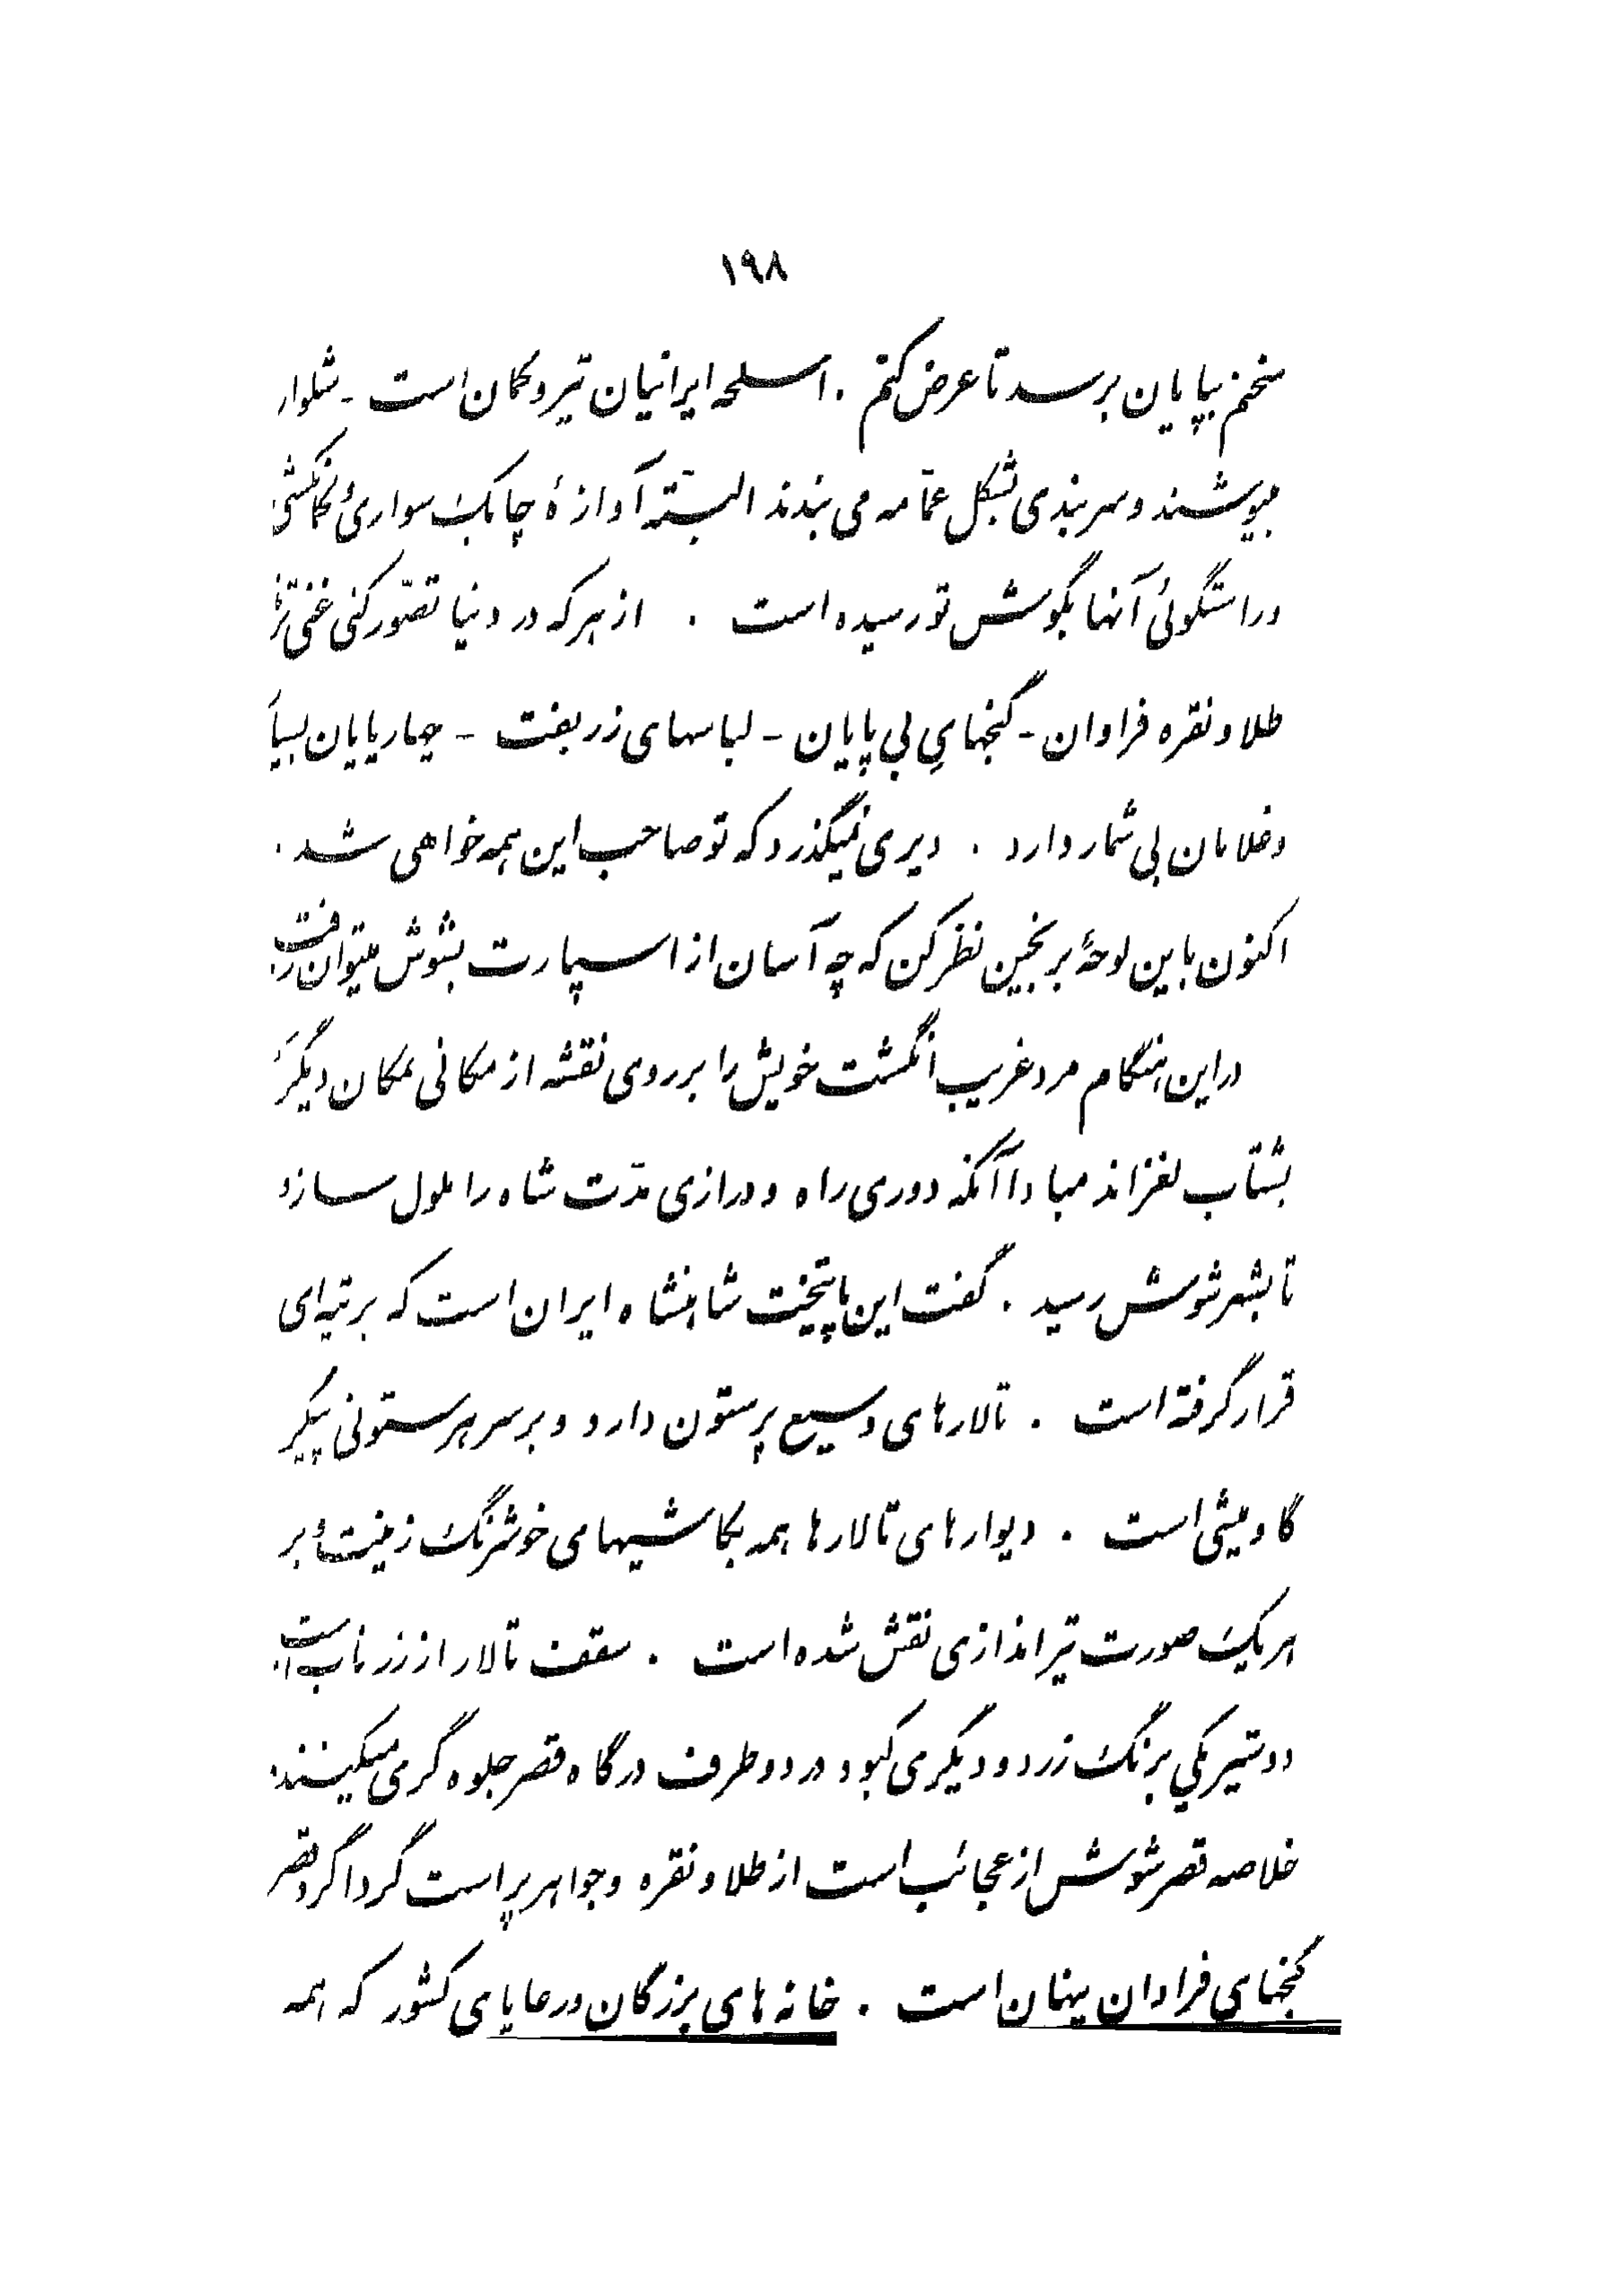 ۱۹۸
سخنم بپایان برسد تا عرض کنم . اسلحه ایرانیان تیر و کمان است - شلوار
میپوشند و سربندی بشکل عمّامه می بندند البتّه آوازهٔ چابک سواری و کمانکشی
و راستگوئی آنها بگوش تو رسیده است . از هر که در دنیا تصّور کنی غنی ترند
طلا و نقره فراوان - گنجهایِ بی پایان - لباسهای زربفت - چهارپایان بسیار
و غلامان بی شمار دارد . دیری نمیگذرد که تو صاحب این همه خواهی شد .
اکنون باین لوحهٔ برنجین نظر کن که چه آسان از اسپارت بشوش میتوان رفت
در این هنگام مرد غریب انگشت خویش را بر روی نقشه از مکانی بمکان دیگر
بشتاب لغزاند مبادا آنکه دوری راه و درازی مدّت شاه را ملول سازد
تا بشهر شوش رسید . گفت این پایتخت شاهنشاه ایران است که بر تپه ای
قرار گرفته است . تالارهای وسیع پرستون دارد و بر سر هر ستونی پیکر
گاومیشی است . دیوارهای تالارها همه بکاشیهای خوشرنگ زینت و بر
هر یک صورت تیراندازی نقش شده است . سقف تالار از زر ناب است
دو شیر یکی برنگ زرد و دیگری کبود در دو طرف درگاه قصر جلوه گری میکنند
خلاصه قصر شوش از عجائب است از طلا و نقره و جواهر پر است گرداگرد قصر
گنجهای فراوان پنهان است . خانه های بزرگان و رعایای کشور که همه